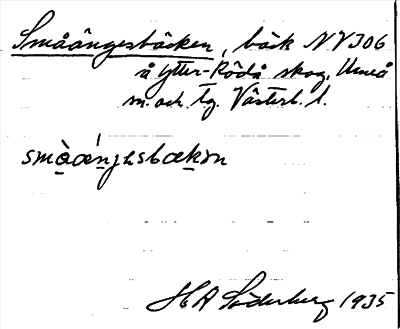 Småängesbäcken, bäck NV 306
å Ytter-Rödå skog, Umeå
sn. och tg. Västerb. l.
småäŋesbækən
H A Söderberg 1935